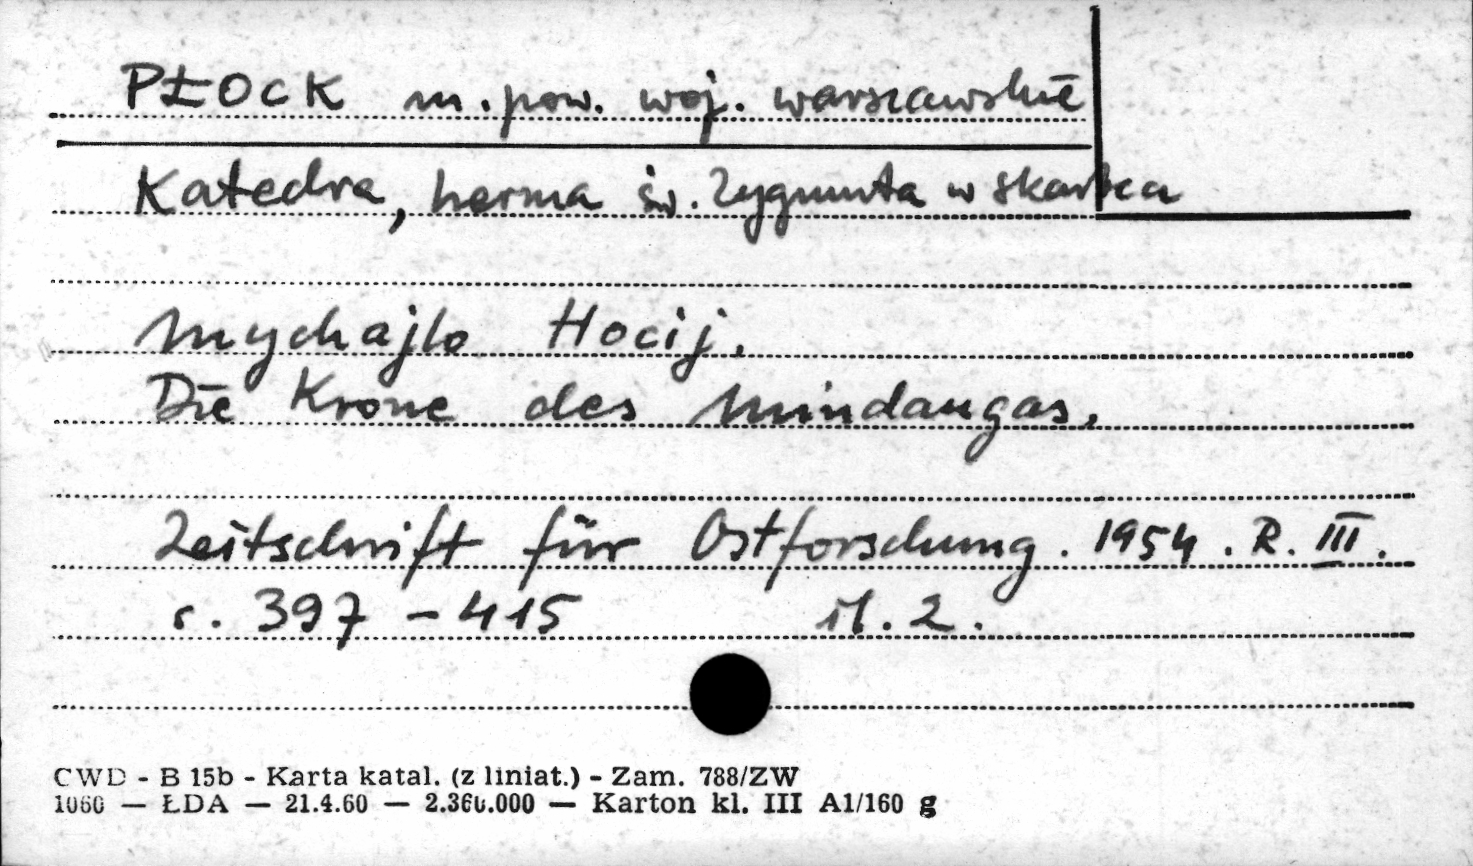 PŁOCK m. pow. woj. warszawskie
Katedra, herma św. Zygmunta w skarbcu
Mychajlo Hocij.
Die Krone des Mindaugas.
Zeitschrift für Ostforschung. 1954. R. III.
s. 397 - 415 il. 2.
CWD - B 15b - Karta katal. (z liniat.) - Zam. 788/ZW
1060 — ŁDA — 21.4.60 — 2.360.000 — Karton kl. III A1/160 g